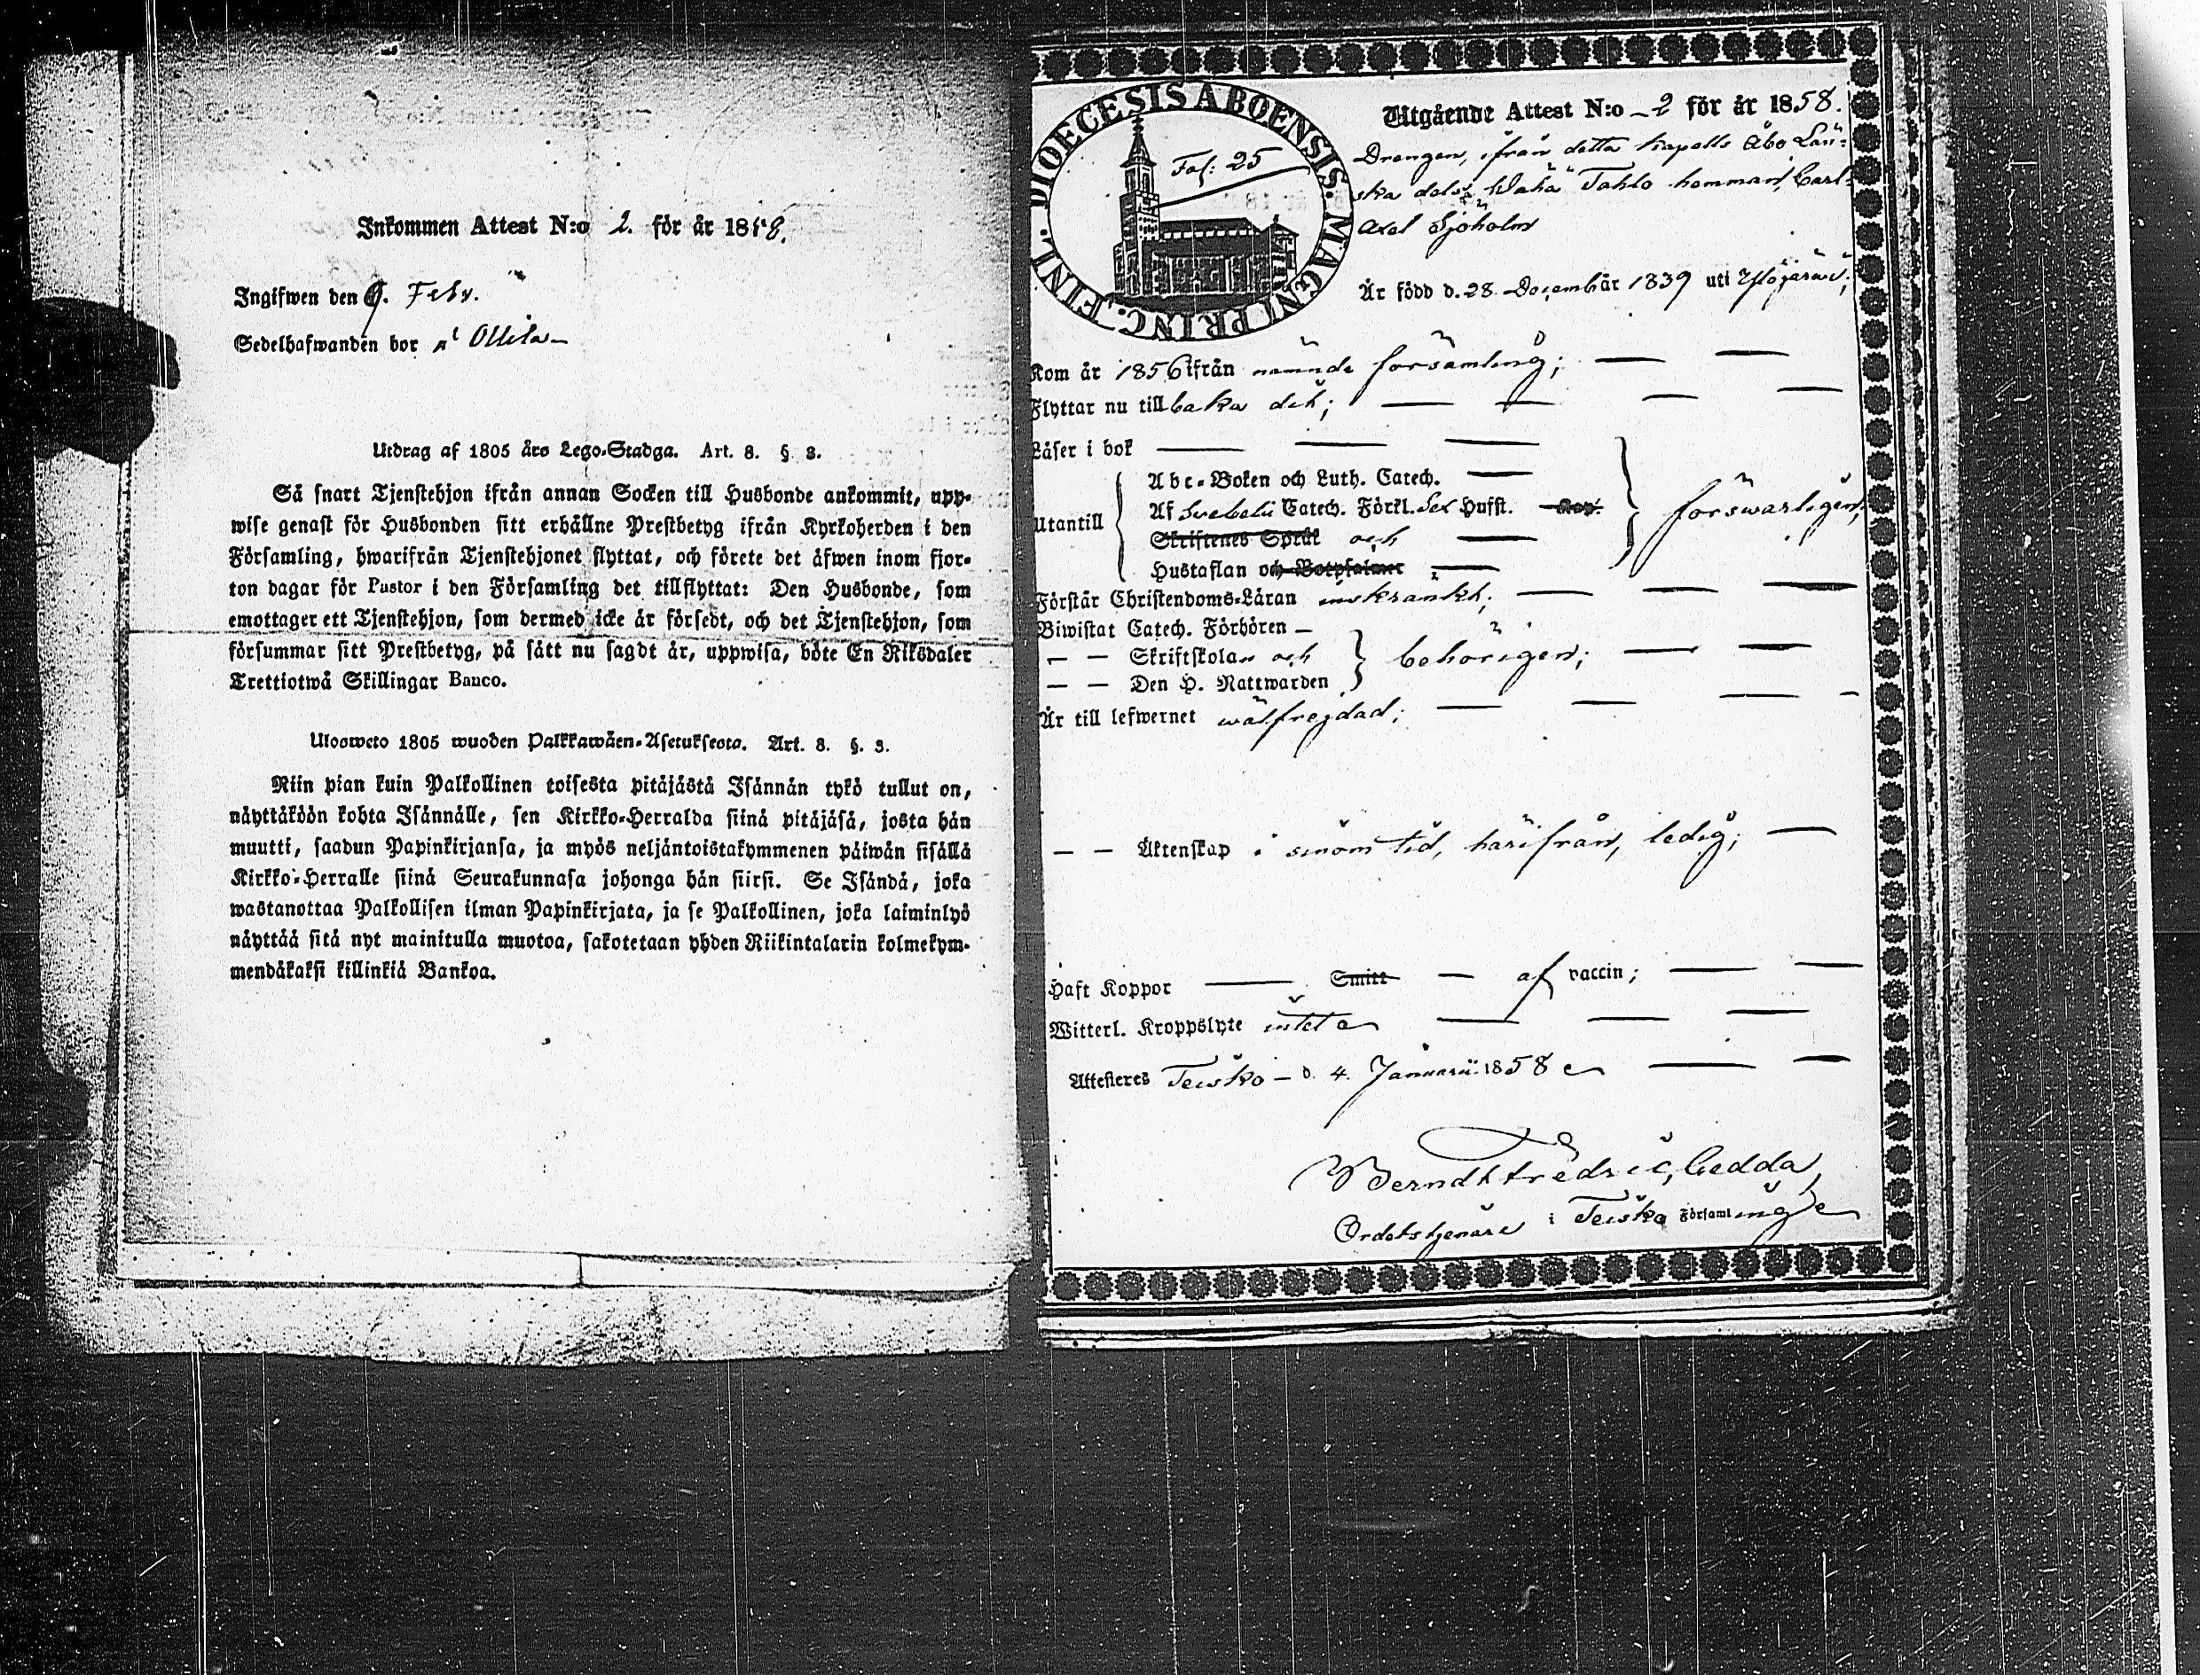 Inkommen Attest N:o 2. för år 1858.
Ingifwen den 9. Febr.
Sedelhafwanden bor på Ollila
Utdrag af 1805 års Lego-Stadga. Art. 8. §. 3.
Så snart Tjenstehjon ifrån annan Socken till Husbonde ankommit, upp-
wise genast för Husbonden sitt erhållne Prestbetyg ifrån Kyrkoherden i den
Församling, hwarifrån Tjenstehjonet flyttat, och förete det äfwen inom fjor-
ton dagar för Pastor i den Församling det tillflyttat: Den Husbonde, som
emottager ett Tjenstehjon, som dermed icke är försedt, och det Tjenstehjon, som
försummar sitt Prestbetyg, på sätt nu sagdt är, uppwisa, böte En Riksdaler
Trettiotwå Skillingar Banco.
Ulosweto 1805 wuoden Palkkawäen-Asetuksesta. Art. 8. §. 3.
Niin pian kuin Palkollinen toisesta pitäjästä Isännän tykö tullut on,
näyttäköön kohta Isännälle, sen Kirkko-Herralda siinä pitäjäsä, josta hän
muutti, saadun Papinkirjansa, ja myös neljäntoistakymmenen päiwän sisällä
Kirkko-Herralle siinä Seurakunnasa johonga hän siirsi. Se Isändä, joka
wastanottaa Palkollisen ilman Papinkirjata, ja se Palkollinen, joka laiminlyö
näyttää sitä nyt mainitulla muotoa, sakotetaan yhden Riikintalarin kolmekym-
mendäkaksi killinkiä Bankoa.
DIOECESIS ABOENSIS. MAGNI PRINC. FINL.
Fol: 25
Utgående Attest N:o 2 för år 1858.
Drengen, ifrån detta kapells Åbo Län-
ska dels Wähä Tohlo hemman, Carl
Axel Sjöholm
Är född d. 28 December 1839 uti Ylöjärwi;
Kom år 1856 ifrån nämnde församling;
Flyttar nu tillbaka dit;
Läser i bok
Abc-Boken och Luth. Catech.
Utantill Af Svebelii Catech. Förkl. Sex Hufst. försvarligen;
Skriftenes Språk och
Hustaflan och Botpsalmer
Förstår Christendoms-Läran inskränkt;
Biwistat Catech. Förhören
— — Skriftskolan och behörigen;
— — Den H. Nattwarden
Är till lefwernet wälfregdad;
— — Äktenskap i sinom tid, härifrån, ledig;
Haft Koppor Smitt af vaccin;
Witterl. Kroppslyte intet
Attesteres Teisko d. 4. Januarii 1858
Berndt Fredric Gedda,
Ordetstjenare i Teisko Församling